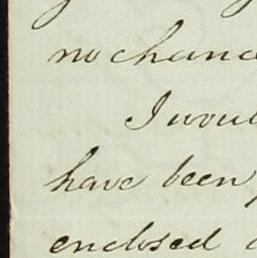 no chance
I would
have been
enclosed